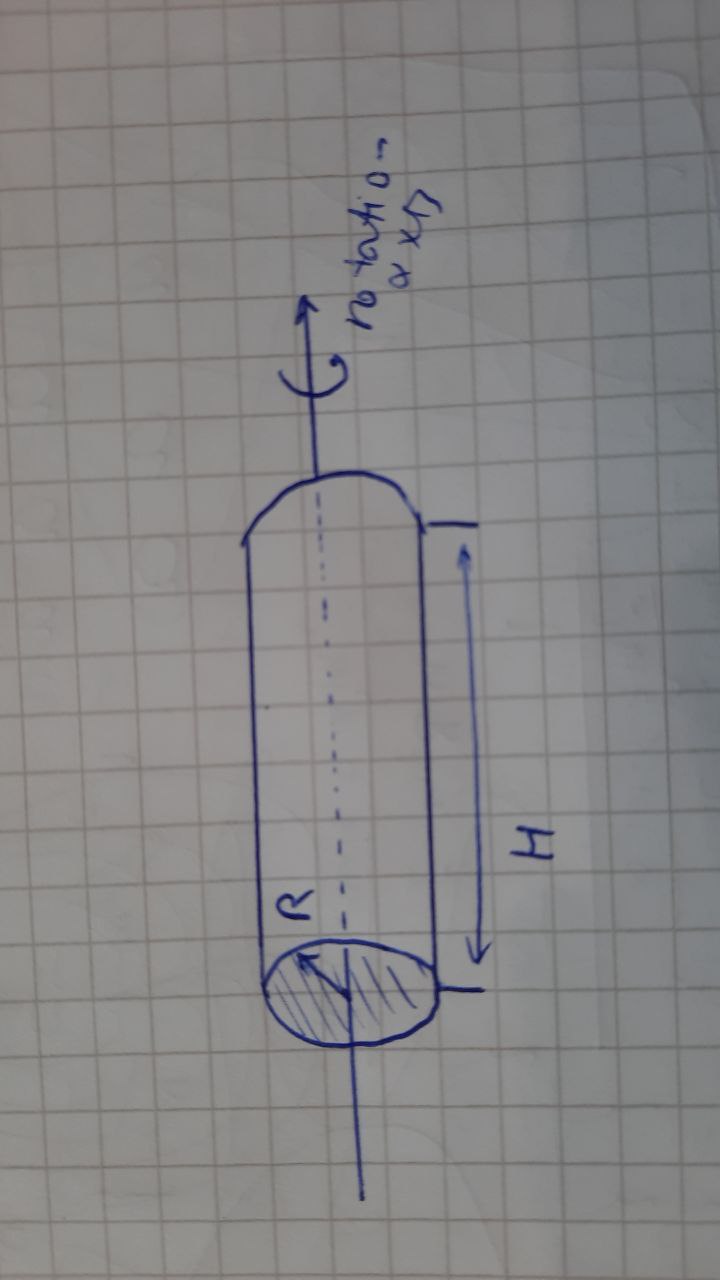 rotation
axis
R
H